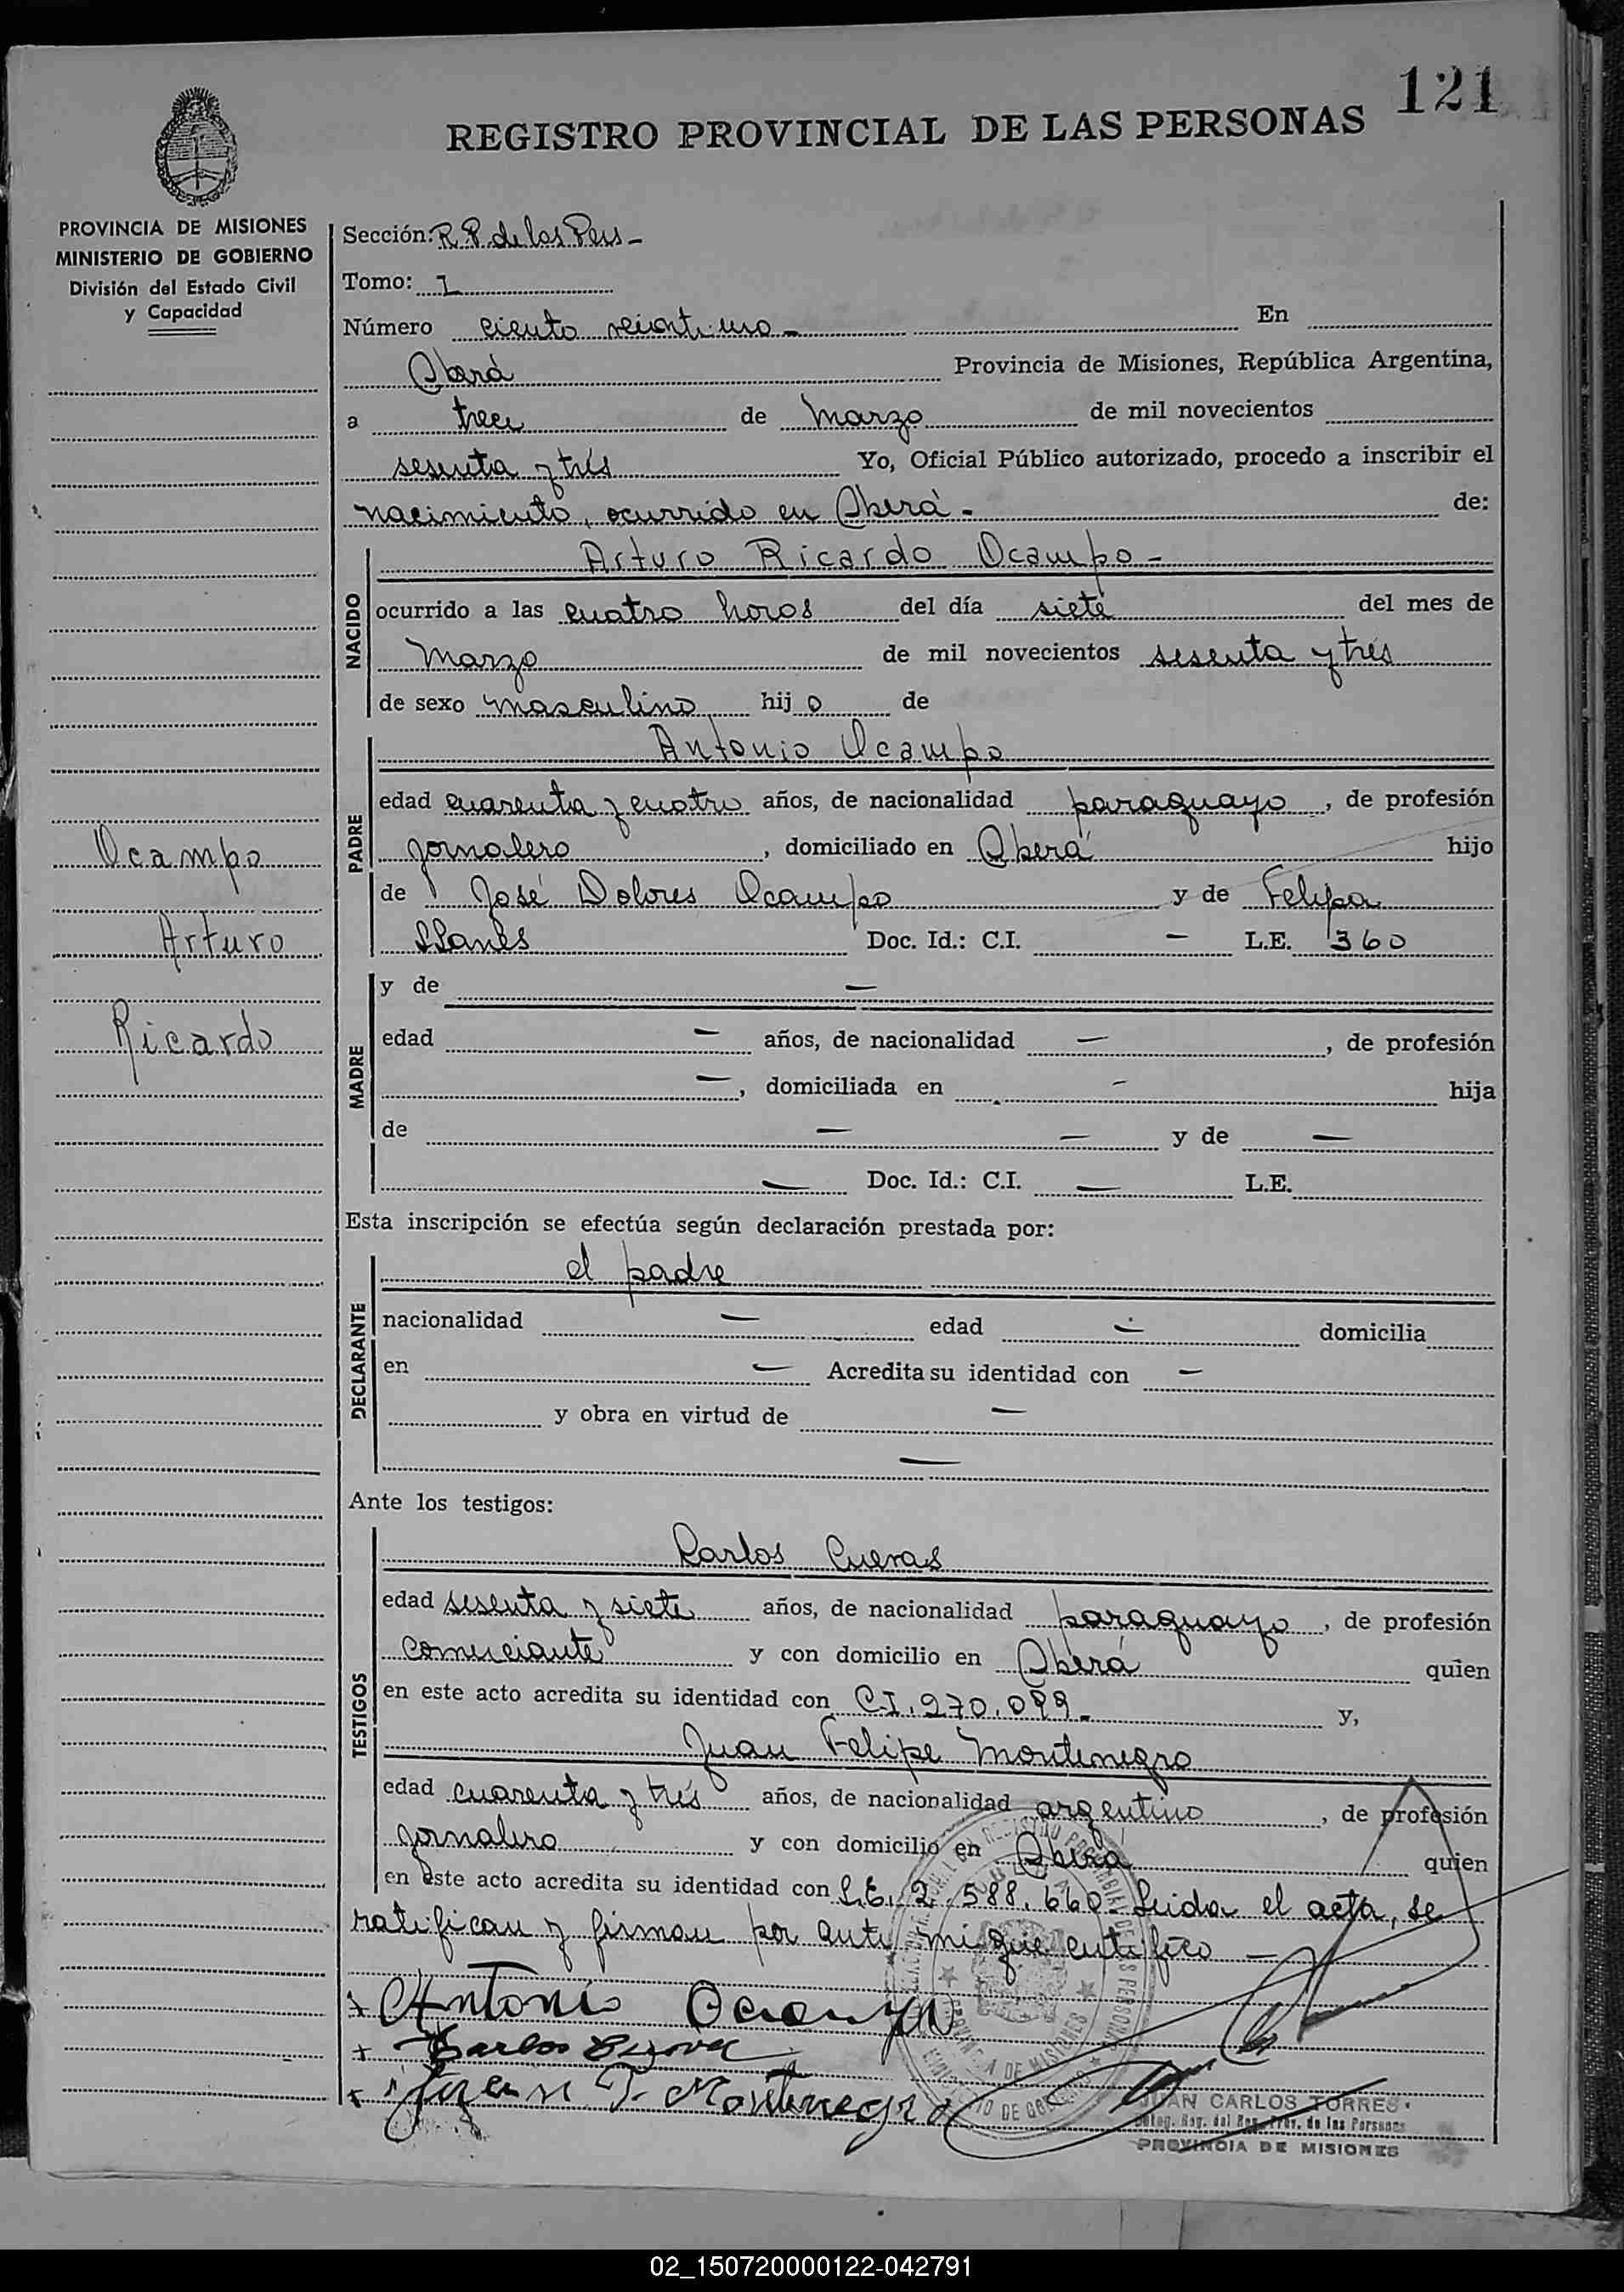 121
REGISTRO PROVINCIAL DE LAS PERSONAS
PROVINCIA DE MISIONES
MINISTERIO DE GOBIERNO
División del Estado Civil
y Capacidad
Sección: R.P. de las Pers -
Tomo: 1
Número ciento veintiuno - En
Oberá Provincia de Misiones, República Argentina,
a trece de Marzo de mil novecientos
sesenta y trés Yo, Oficial Público autorizado, procedo a inscribir el
nacimiento, ocurrido en Oberá - de:
NACIDO
Arturo Ricardo Ocampo -
ocurrido a las cuatro horas del día siete del mes de
Marzo de mil novecientos sesenta y trés
de sexo masculino hij o de
PADRE
Antonio Ocampo
edad cuarenta y cuatro años, de nacionalidad paraguayo, de profesión
jornalero, domiciliado en Oberá hijo
de José Dolores Ocampo y de Felipa
Llanes Doc. Id.: C.I. — L.E. 360
Ocampo
Arturo
Ricardo
MADRE
y de —
edad — años, de nacionalidad —, de profesión
—, domiciliada en - hija
de — — y de —
— Doc. Id.: C.I. — L.E.
Esta inscripción se efectúa según declaración prestada por:
DECLARANTE
el padre
nacionalidad — edad — domicilia
en — Acredita su identidad con —
y obra en virtud de —
—
Ante los testigos:
TESTIGOS
Carlos Cuevas
edad sesenta y siete años, de nacionalidad paraguayo, de profesión
comerciante y con domicilio en Oberá quien
en este acto acredita su identidad con C.I. 270.099 - y,
Juan Felipe Montenegro
edad cuarenta y trés años, de nacionalidad argentino, de profesión
jornalero y con domicilio en Oberá quien
en este acto acredita su identidad con L.E. 2.588.660 - Leida el acta, se
ratifican y firman por ante mi que certifico —
x Antonio Ocampo
+ Carlos
x Juan F. Montenegro
JUAN CARLOS TORRES
Deleg. Reg. del Reg. Prov. de las Personas
PROVINCIA DE MISIONES
02_150720000122-042791